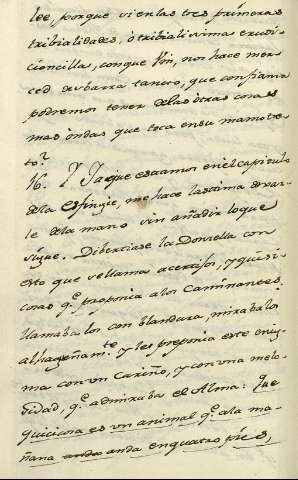 lee, porque si en las tres primeras
tribialidades, ò tribialissima erudi-
cioncilla, con que fin, nos hace mer-
ced de barra tanto, que confianza
podremos tener de las otras cosas
mas ondas que toca en su mamotre-
to?
16. Ya que estamos en el capitulo
de la Esfingie, me hace lastima dexar-
le de la mano sin añadir lo que
sigue. Dibertiase la Donsella con
esto que se llama acertijos, y quisi-
cosas q.e proponia a los Caminantes.
Llamaba los con blandura, mirabalos
alhagueñam.te y les proponia este enig-
ma con un Cariño, y con una melo-
sidad, q.e admiraba el Alma: Que
quicicosa es un animal q.e a la ma-
ñana anda en quatro pies,